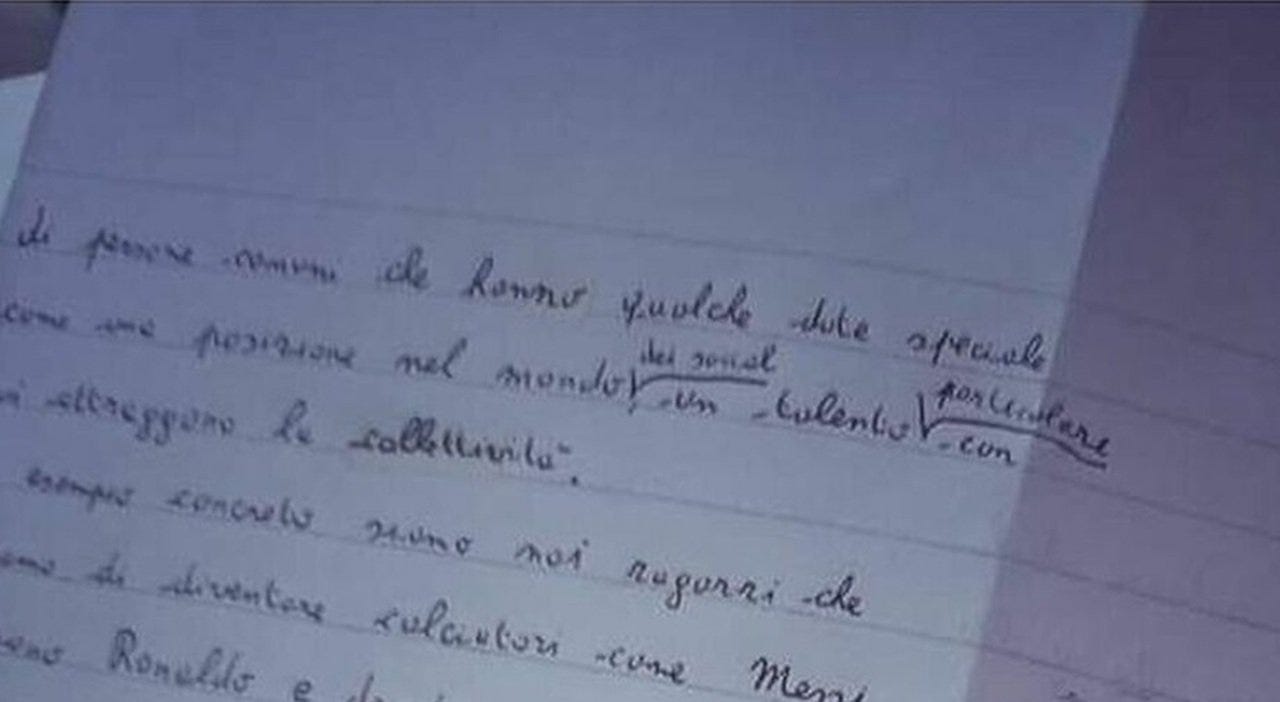 di persone comuni che hanno qualche dote speciale
come una posizione nel mondo dei social un talento particolare con
attraggono la collettività.
esempio concreto siamo noi ragazzi che
di diventare calciatori come Messi
Ronaldo e